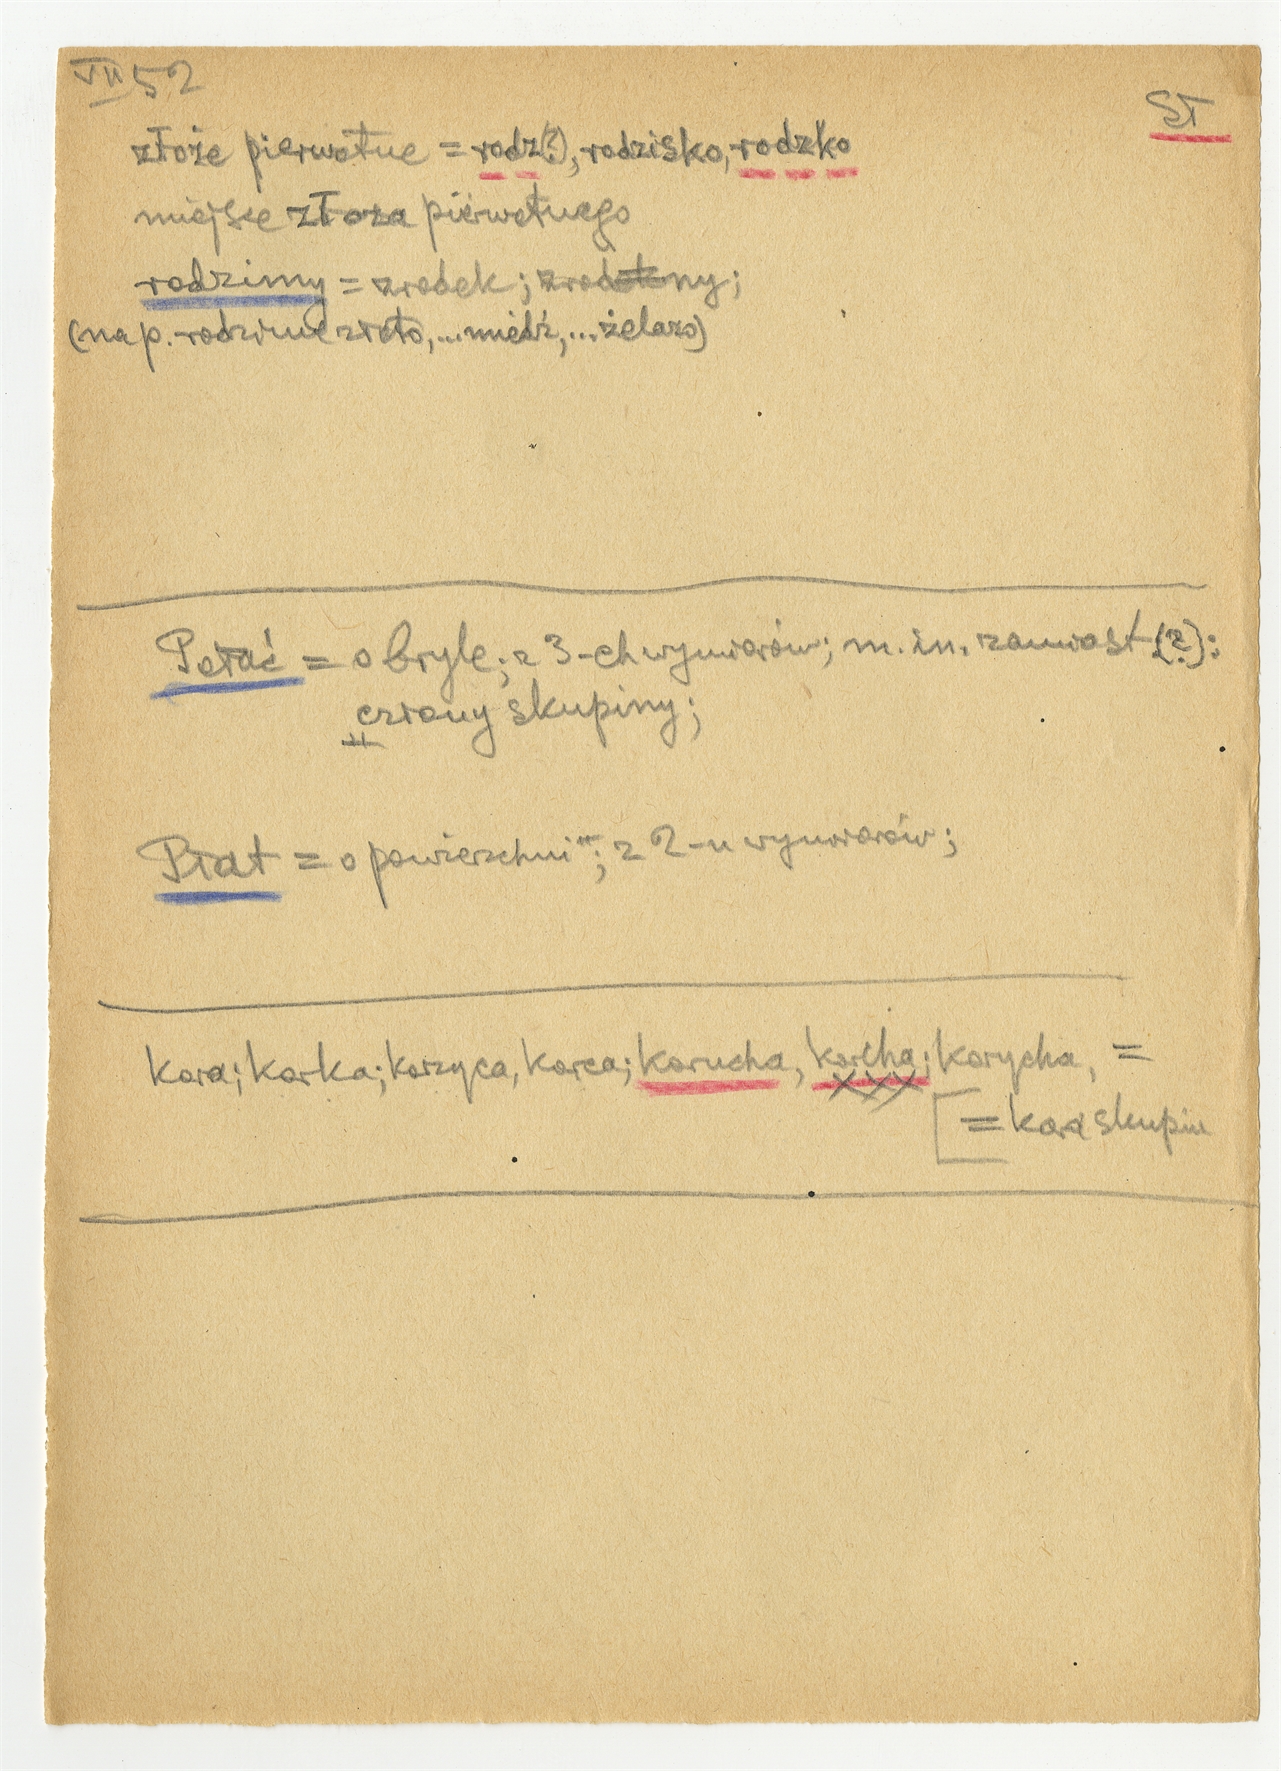 VII 52
SŁ
złoże pierwotne = rodz(?), rodzisko, rodzko
miejsce złoża pierwotnego
rodzimy = zrodek; zrodzny;
(nap. rodzime złoto, ... miedź, ... żelazo)
Połać = o bryle; z 3-ch wymiarów; m. in. zamiast (?):
człony skupiny;
Płat = o powierzchni; z 2-u wymiarów;
kora; korka; korzyca, korca; korucha, korcha; korycha, =
= kora skupin